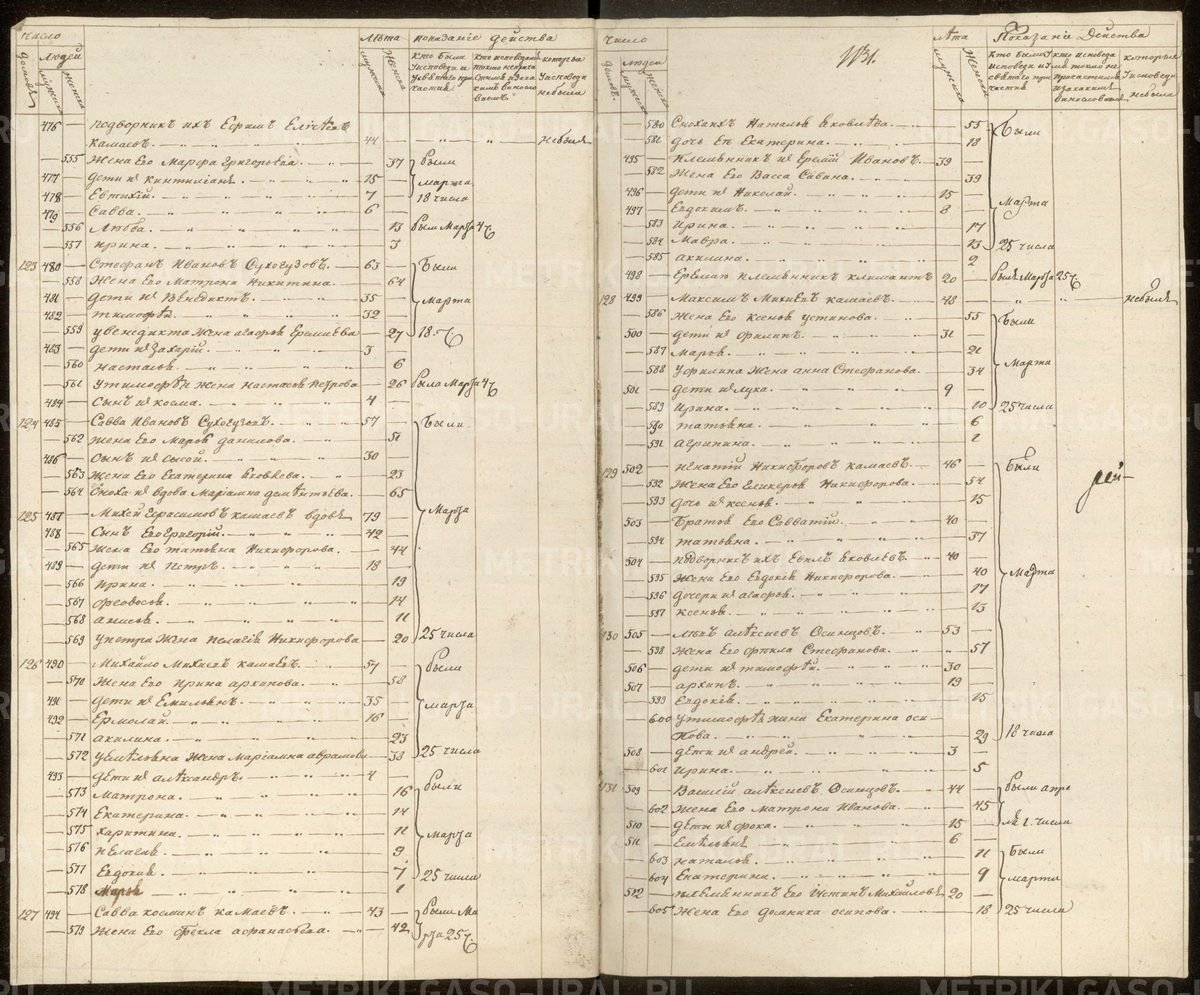 число
людей
лѣта
показаніе действа
домовъ
мужска
женска
мужска
женска
кто были
у исповеди и
у святаго при
частия
которыя
у исповеди
небыли
476 — подворникъ ихъ Ефимъ
камаевъ. 44 — небылъ
555 Жена Его Марфа григорьева. — 37 были
477 — дети их 15 — марта
478 Евтихій. 7 — 18 числа
479 Савва. 6 —
556 Любва. — 13 были Марта 4
557 Ирина. — 3
123 480 — Стефанъ Ивановъ Сухогузовъ. 63 — были
558 Жена Его Матрона Никитина. — 64
481 — дети их Венедиктъ. 35 — марта
482 — тимофей 32 —
559 у венедикта жена агафья Еремиева — 27 18. ч
483 — дети их Захарій. 3 —
560 настасья. — 6
561 у тимофея жена настасья петрова — 26 была Марта 4
484 — сынъ их косма. 4 —
124 485 — Савва Ивановъ Сухогузовъ. 57 — были
562 жена Его Марья данилова. — 51
486 — сынъ их 30 —
563 Жена Его Екатерина Яковлева. — 23
564 Сноха их вдова Маріамна — 65
125 487 — Михей Герасимовъ камаевъ вдовъ 79 — Марта
488 — Сынъ Его григорій. 42 —
565 Жена Его татьяна Никифорова. — 44
489 — дети их Петръ. 18 —
566 Ирина. — 19
567 феодосья. — 14
568 анисья. — 11
569 у петра жена пелагія Никифорова — 20 25 числа
126 490 — Михайло Михиевъ камаевъ. 57 — были
570 Жена Его Ирина архипова. — 58
491 — дети их Емильянъ. 35 — марта
492 — Ермолай. 16 —
571 акилина. — 23
572 жена Маріамна аврамова — 38 25 числа
493 — дети их алѣксандръ. 4 —
573 Матрона. — 16 были
574 Екатерина. — 14
575 Харитина. — 11 Марта
576 пелагия. — 9
577 Евдокия. — 7 25 числа
578 Марья — 1
127 494 — Савва косминъ камаевъ. 43 — были Ма
579 Жена Его Фекла афанасьева. — 42 рта 25 ч
число
людей
131.
лѣта
Показаніе Действа
мужска
женска
мужска
женска
кто были у
исповеди и у
святаго при
частия
которыя
у исповеди
небыли
580 Наталья Яковлева. — 55 были
581 дочь Ея Екатерина. — 18
495 — племянникъ их Еремій Ивановъ. 39 —
582 Жена Его Васса Савина. — 39
496 — дети их Николай. 15 —
497 — Евдокимъ. 8 — Марта
583 Ирина. — 17
584 Мавра. — 13 25 числа
585 акилина. — 2
498 — племянникъ 20 — былъ Марта 25 ч.
128 499 — Максимъ Михиевъ камаевъ. 48 — небылъ
586 Жена Его Ксенья устинова. — 55 были
500 — дети их филипъ. 31 —
587 Марья. — 21 Марта
588 у филипа Жена анна Стефанова. — 34
501 — дети их лука. 9 —
589 Ирина. — 10 25 числа
590 татьяна. — 6
591 Агрипина. — 1
129 502 — игнатій Никифоровъ камаевъ. 46 — были
592 Жена Его гликерья Никифорова. — 54
593 дочь их ксенья. — 15
503 — Братъ Его Савватій 40 —
594 татьяна. — 37
504 — подворникъ ихъ Яковлевъ. 40 —
595 Жена Его Евдокія Никифорова. — 40 Марта
596 дочери их агафья. — 17
597 Ксенья. — 13
130 505 — алѣксиевъ Осинцовъ. 53 —
598 Жена Его фекла Стефанова. — 57
506 — дети их тимофей. 30 —
507 — архипъ. 19 —
599 Евдокія. — 15
600 у тимофея жена Екатерина оси
пова. — 29 18 числа
508 — дети их андрей. 3 —
601 Ирина. — 5
131 509 — Василій алѣксиевъ Осинцовъ. 44 — были апре
602 Жена Его Матрона Иванова. — 45
510 — дети их фока. 15 — ля 1. числа
511 — 6 —
603 наталья. — 11 были
604 Екатерина. — 9 марта
512 — племянникъ Его Устинъ Михайловъ 20 —
605 Жена Его домника осипова. — 18 25 числа
METRIKI.GASO-URAL.RU